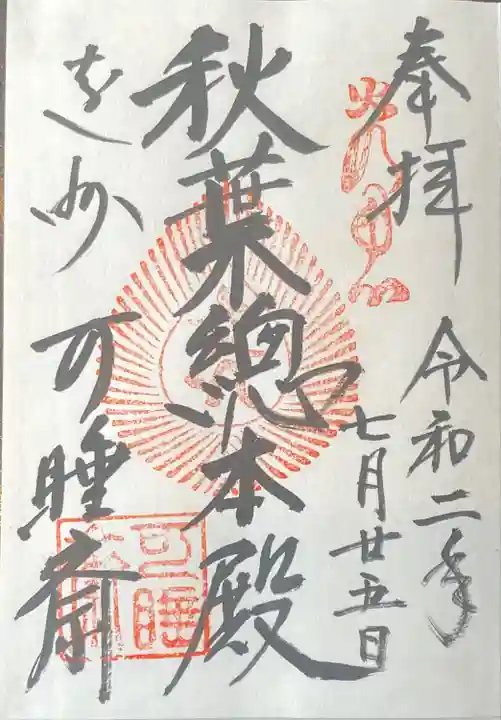 奉拝
令和二年
七月廿五日
秋葉總本殿
遠州
可睡斎
可睡